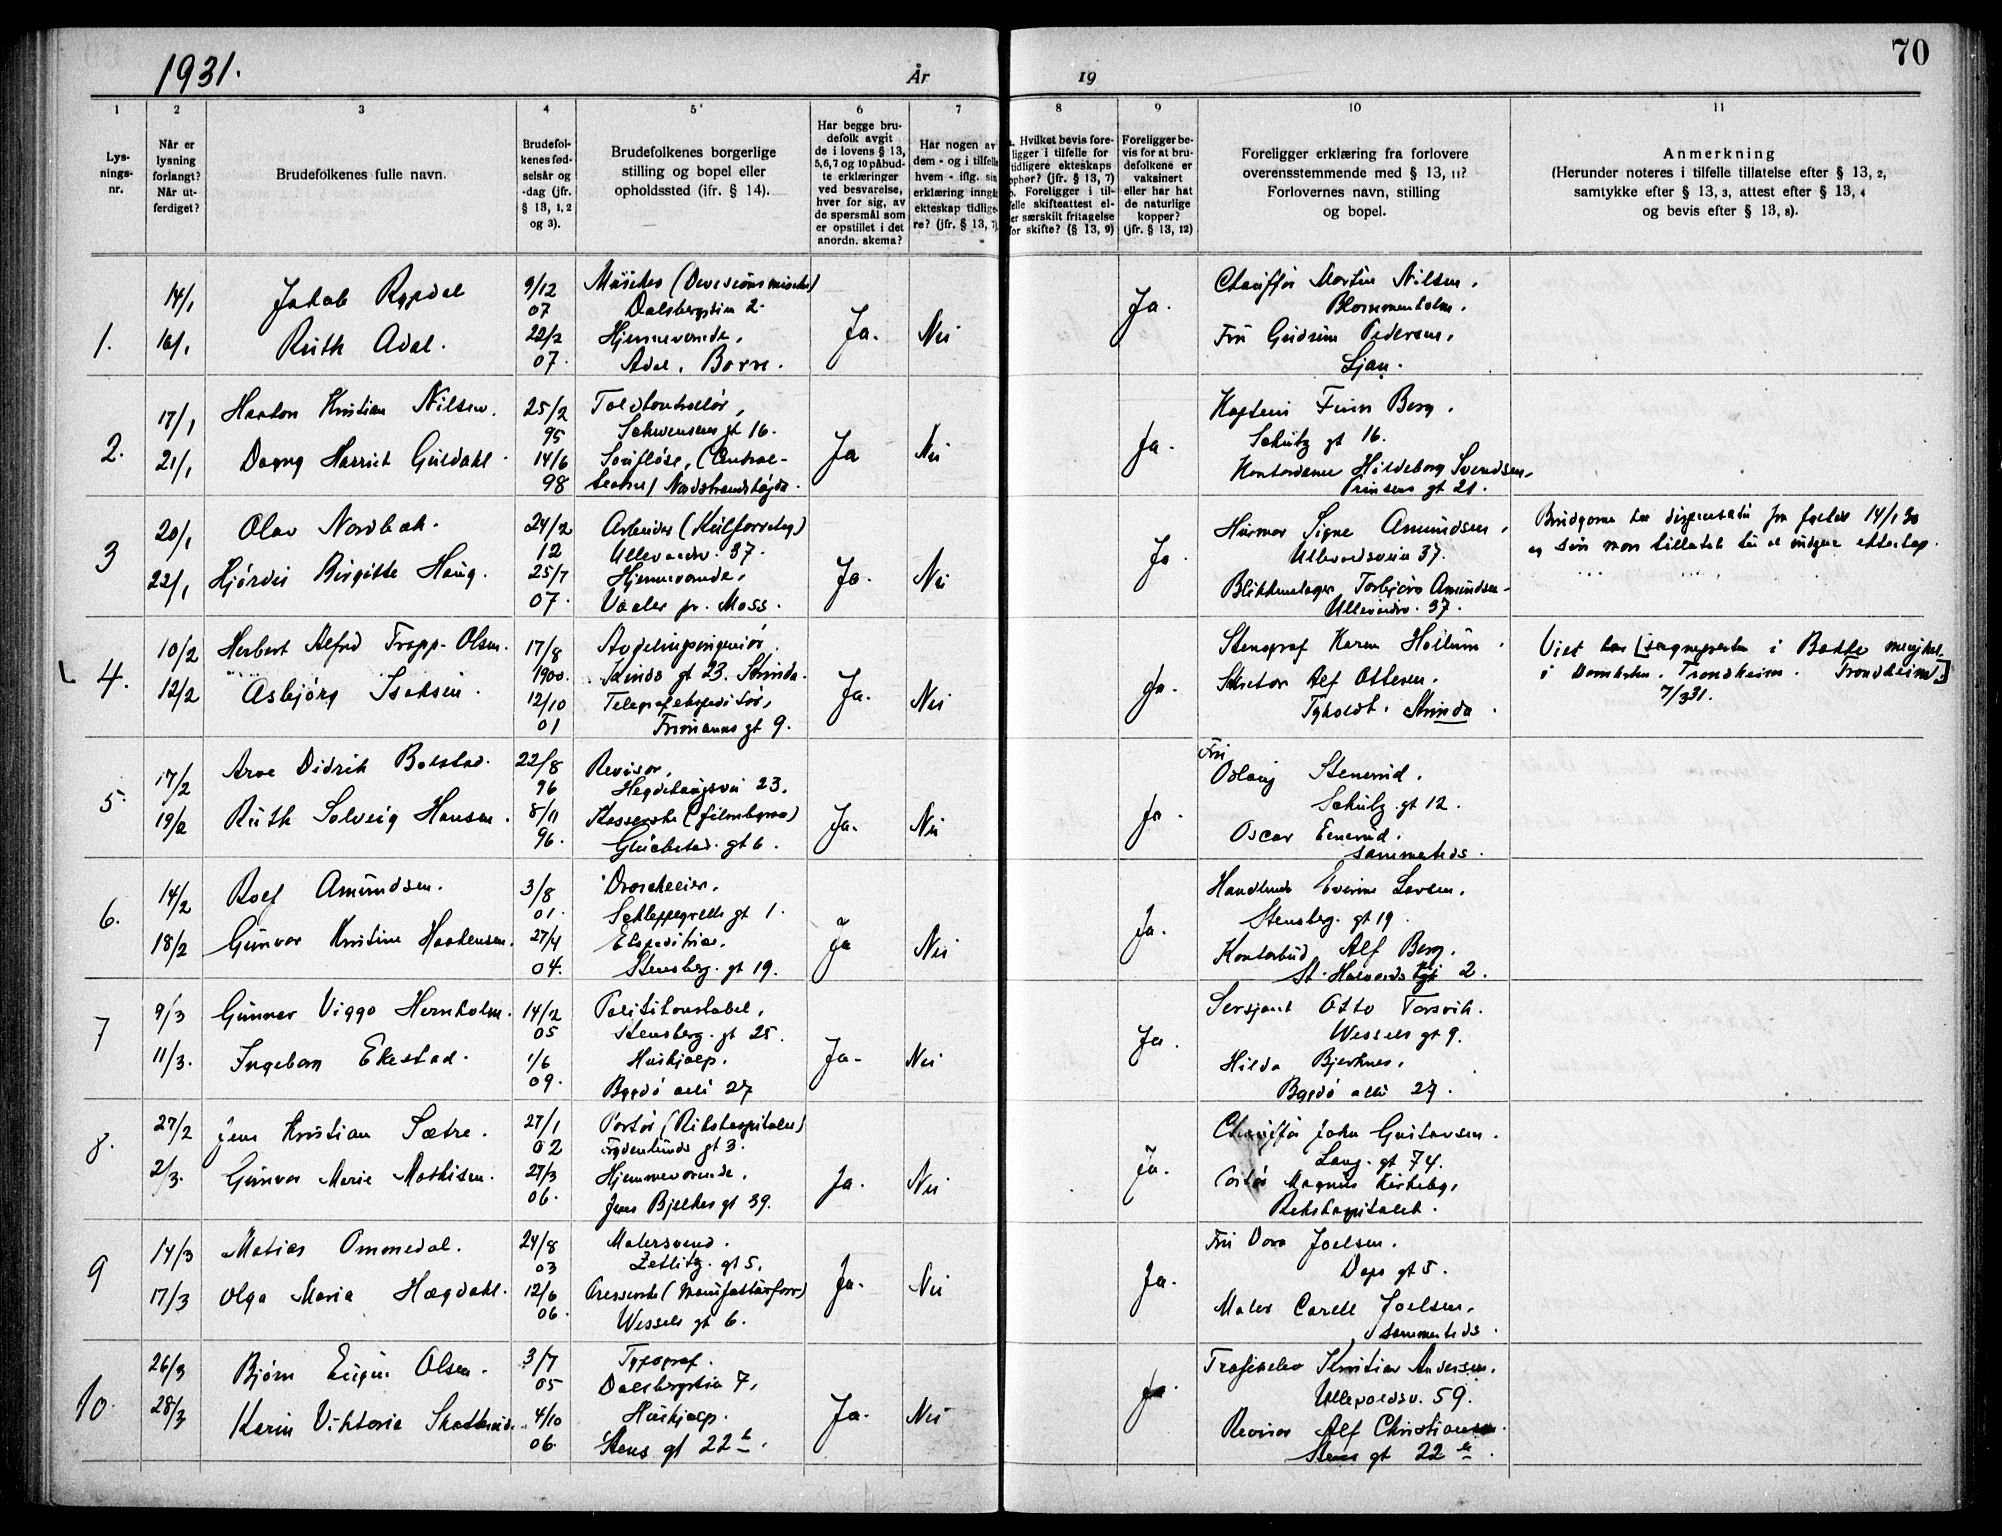 1931.
År
19
70
1
2
3
4
5
6
7
8
9
10
11
Lys-
nings-
nr.
Når er
lysning
forlangt?
Når ut-
ferdiget?
Brudefolkenes fulle navn.
Brudefol-
kenes fød-
selsår og
-dag (jfr.
§ 13, 1, 2
og 3).
Brudefolkenes borgerlige
stilling og bopel eller
opholdssted (ifr. § 14).
Har begge bru-
defolk avgit
de i lovens § 13,
5,6,7 og 10 påbud-
te erklæringer
ved besvarelse,
hver for sig, av
de spørsmål som
er opstillet i det
anordn. skema?
Har nogen av
dem - og i tilfelle
hvem - iflg. sin
erklæring inngå
ekteskap tidlige-
re? (jfr. § 13, 7)
Hvilket bevis fore-
ligger i tilfelle for
tidligere ekteskaps
ophør? (jfr. § 13, 7)
Foreligger i til-
felle skifteattest el-
er særskilt fritagelse
for skifte? (§ 13, 9)
Foreligger be-
vis for at bru-
defolkene er
vaksinert
eller har hat
de naturlige
kopper?
(jfr. § 13, 12)
Foreligger erklæring fra forlovere
overensstemmende med § 13, 11?
Forlovernes navn, stilling
og bopel.
Anmerkning
(Herunder noteres i tilfelle tillatelse efter § 13, 2,
samtykke efter § 13, 3, attest efter § 13, 4
og bevis efter § 13, 8).
1.
14/1
16/1
Jakob Rypdal
Ruth Adal.
9/12
07
22/2
07.
Dalsbergstien 2.
Hjemmeværende,
Adal, Borre.
Ja.
Nei
Ja.
Chauffør Martin Nilsen,
Blommenholm.
Fru Gudrun Pedersen,
Ljan.
2.
17/1
21/1
Haakon Kristian Nilsen.
Dagny Harriet Guldahl.
25/2
95
14/6
98
Toldkontrollør,
Schwensens gt 16.
Nordstrandshøgda.
Ja
Nei
Ja.
Kaptein Finn Berg.
Schultz gt 16.
Kontordame Hildeborg Svendsen,
Prinsens gt 21.
3
20/1
22/1
Olav Nordbæk.
Hjørdis Birgitte Haug.
24/2
12
25/7
07.
Arbeider (Kulforretng)
Ullevaalsv. 37.
Hjemmeværende,
Vaaler pr. Moss.
Ja.
Nei
Ja
Husmor Signe Amundsen,
Ullevoldsveien 37.
Blikkenslager Torbjørn Amundsen
Ullevoldsv. 37.
Brudgommen har dispensation fra fylket 14/1 30
og sin mors tillatelse til at indgaa ekteskap.
4.
10/2
12/2
Herbert Alfred Tropp-Olsen.
Asbjørg Isaksen.
17/8
1900.
12/10
01
Avdelingsingeniør,
gt 23. Strinda.
Telegrafekspeditør,
gt 9.
Ja.
Nei
Ja.
Stenograf Karen Hollum.
Sekretær Alf Ottesen.
Tyholdt. Strinda.
Viet hos
i Domkirken. Trondheim. Trondheim.]
7/3 31.
5.
17/2
19/2
Arne Didrik Bolstad.
Ruth Solveig Hansen.
22/8
96
8/11
96.
Revisor,
Hegdehaugsvei 23.
Kassererske (filmbyraa)
Glückstad. gt 6.
Ja.
Nei
Ja.
Fru
Oslaug Stenerud.
Schultz. gt 12.
Oscar Stenerud.
sammesteds.
6.
14/2
18/2
Rolf Amundsen.
Gunvor Kristine Haakensen.
3/8
01.
27/4
04.
Droscheeier.
Schleppegrells gt 1.
Ekspeditrise.
Stensberg. gt 19.
Ja
Nei
Ja.
Handlende Everine Larsen.
Stensberg. gt 19.
Kontorbud Alf Berg.
St. Halvards gt 2.
7
9/3
11/3.
Gunnar Viggo Hernholm.
Ingeborg Ekestad.
14/12
05
1/6
09.
Politikonstabel,
Stensberg. gt 25.
Hushjælp.
Bygdø allé 27
Ja.
Nei
Ja.
Sersjant Otto Torsvik.
Wessels gt 9.
Hilda Bjerknes,
Bygdø allé 27.
8.
27/2
2/3.
Jens Kristian Sætre.
Gunvor Marie Mathisen.
27/1
02
27/3
06.
Portør (Rikshospitalet)
Frydenlunds gt 3.
Hjemmeværende.
Jens Bjelkes gt 39.
Ja.
Nei
Ja.
Chauffør John Gustavsen.
Lang. gt 74.
Portør Magnus Kirkeby,
Rikshospitalet.
9
14/3
17/3
Matias Ommedal.
Olga Maria Hægdahl.
24/8
03
12/6
06.
Malersvend.
Zetlitz. gt 5.
Presserske (Manufakturforr)
Wessels gt 6.
Ja.
Nei
Ja.
Fru Dora Joelsen.
Dops gt 5.
Maler Carell Joelsen,
sammesteds.
10.
26/3
28/3
Bjørn Eugen Olsen.
Karin Viktoria
3/7
05
4/10
06.
Typograf.
Dalsbergstien 7.
Hushjælp.
Stens gt 22 b.
Ja.
Nei
Ja.
Trafikelev Kristian Andersen.
Ullevoldsv. 59.
Revisor Alf Christiansen.
Stens gt 22 b.